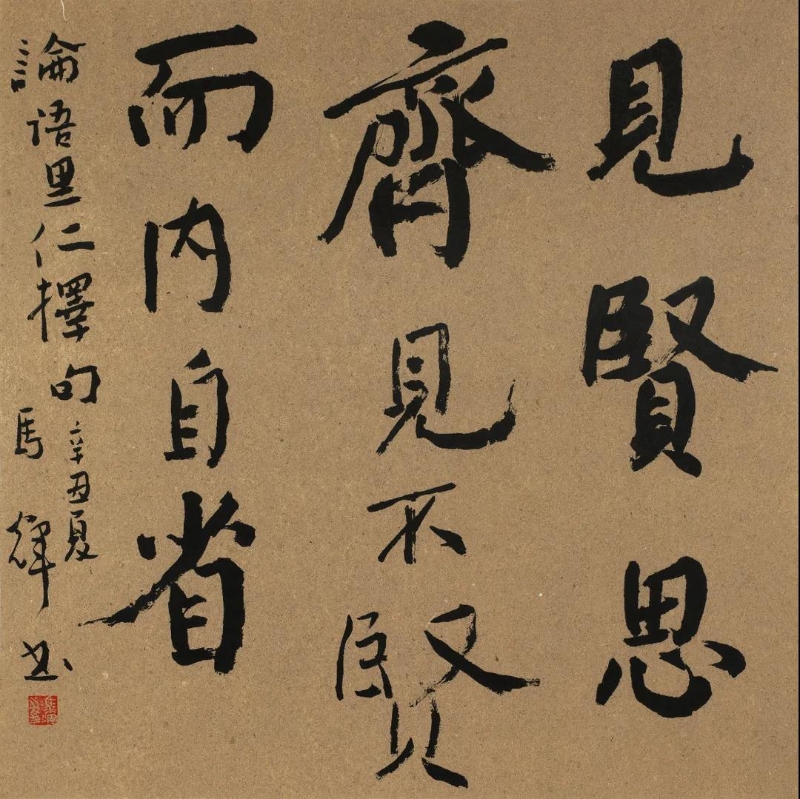 見賢思
齊見不賢
而内自省
論语里仁擇句
辛丑夏
馬輝书